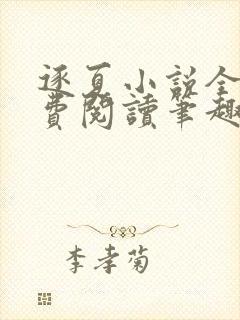 逐夏小说全
費閱讀筆趣
李孝菊